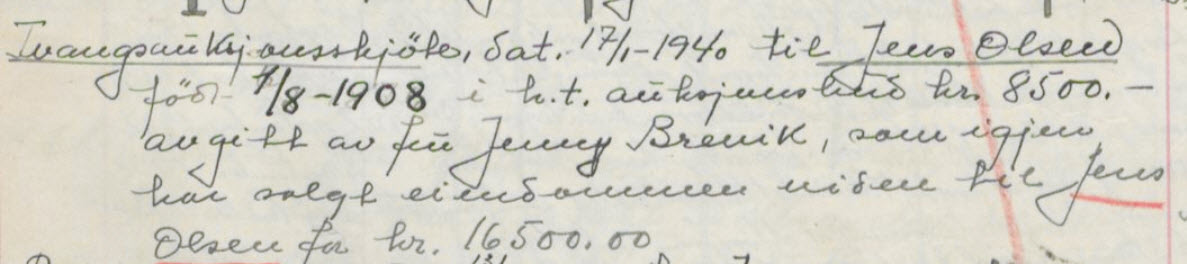 Tvangsauksjonsskjöte, dat. 17/1-1940 til Jens Olsen
född 7/8-1908 i h.t. auksjonsbud kr. 8500.-
avgitt av fru Jenny Brevik, som igjen
har solgt eiendommen viden til Jens
Olsen for kr. 16500.00